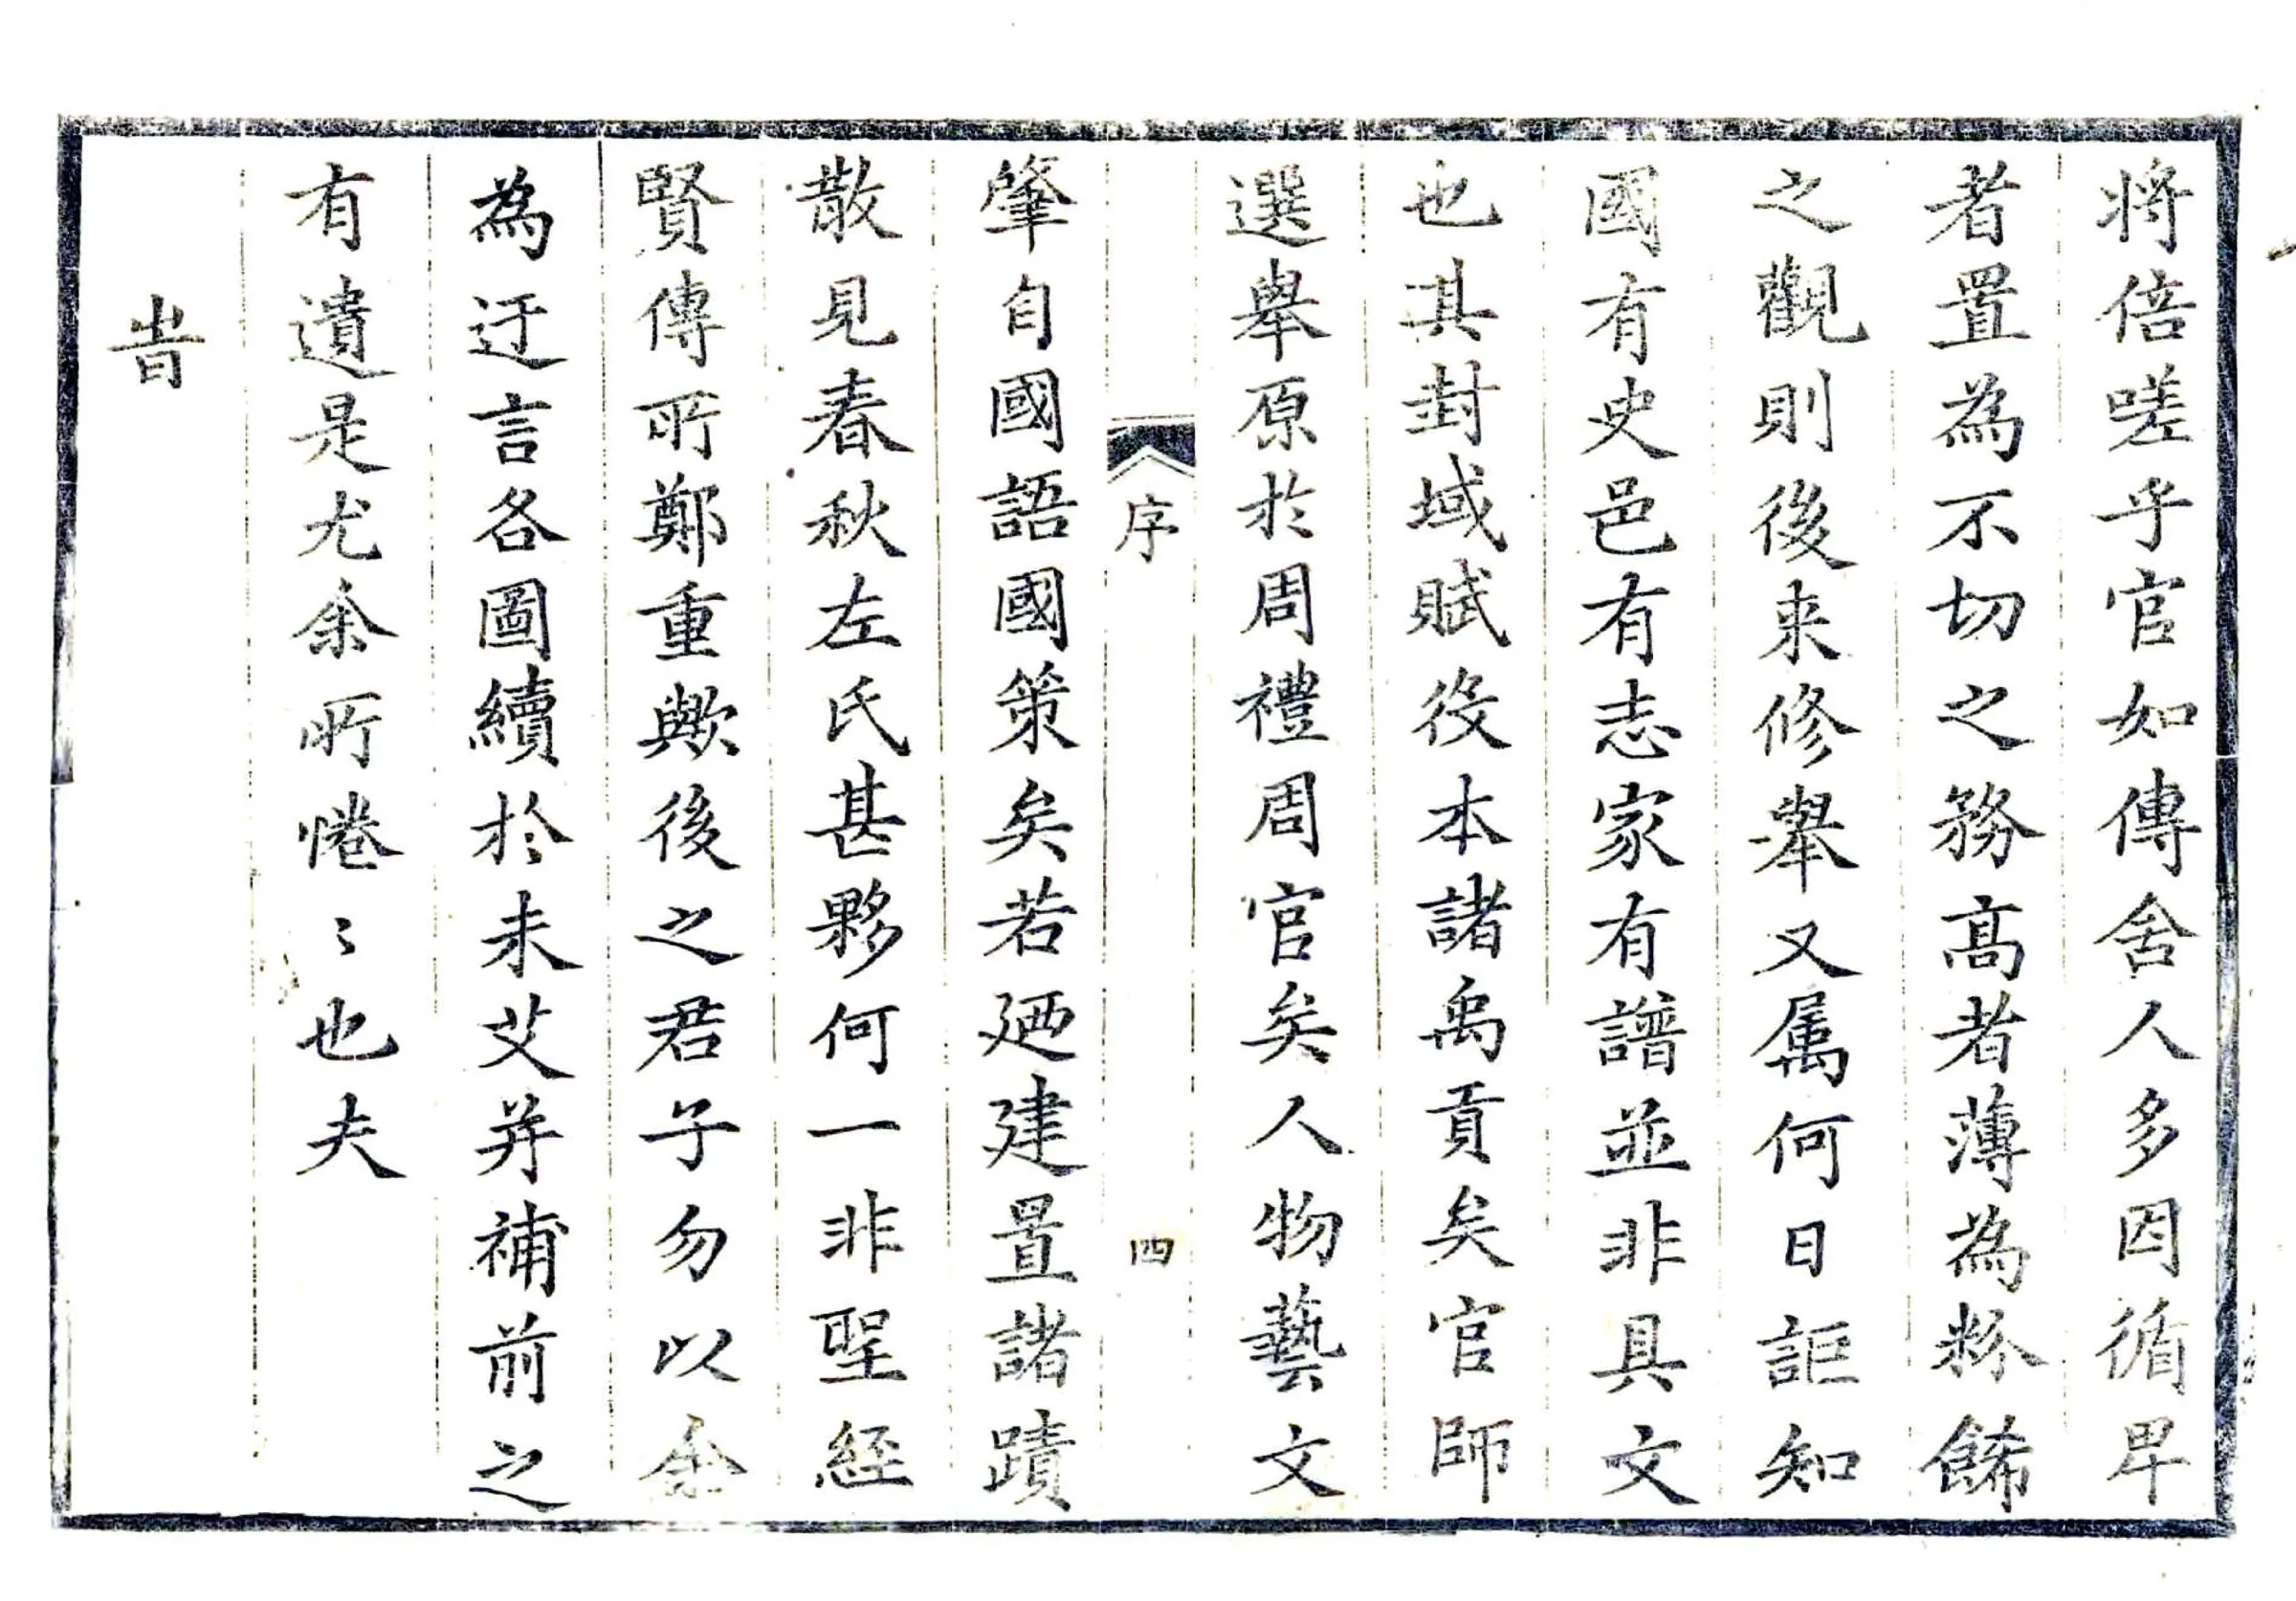 將倍嗟乎官如傳舍人多因循卑
者置為不切之務高者薄為粉餙
之觀則後来修舉又属何日詎知
國有史邑有志家有譜並非具文
也其封域賦役本諸禹貢矣官師
選舉原於周禮周官矣人物藝文
序 四
肇自國語國策矣若廼建置諸蹟
散見春秋左氏甚夥何一非聖経
賢傳所鄭重歟後之君子勿以余
為迂言各圖續於未艾并補前之
有遺是尤余所惓〻也夫
旹